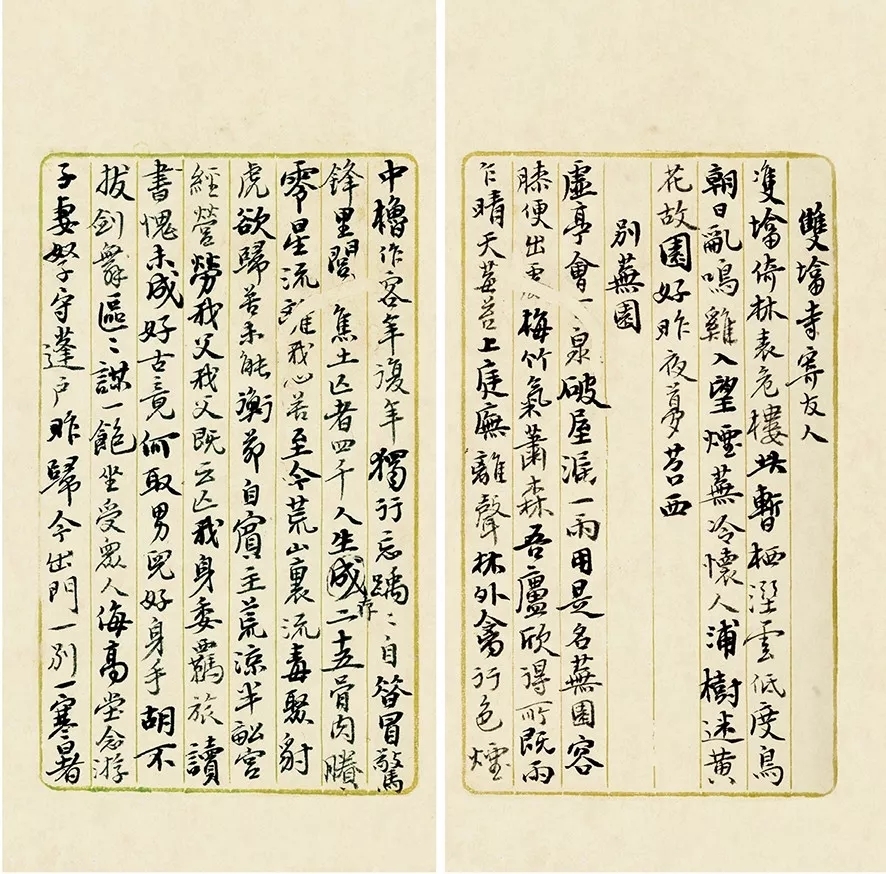 雙墖寺寄友人
隻墖倚林表危樓共暫栖溼雲低度鳥
朝日亂鳴雞入望煙蕪冷懷人浦樹迷黃
花故園好昨夜夢苕西
別蕪園
虛亭會一泉破屋漏一雨用是名蕪園容
膝便出梅竹氣蕭森吾廬欣得所既雨
乍晴天莓苔上庭廡離聲林外禽行色煙
中櫓作客年復年獨行忘踽〻自冒驚
鋒里閭焦土亡者四千人生成存二十五骨肉賸
零星流我心苦至今荒山裏流毒聚豺
虎欲歸苦未能衡茆自賓主荒涼半畝宮
經營勞我父我父既云亡我身委羈旅讀
書愧未成好古竟何取男兒好身手胡不
拔劍舞區〻謀一飽坐受眾人侮高堂念游
子妻孥守蓬戶昨歸今出門一別一寒暑